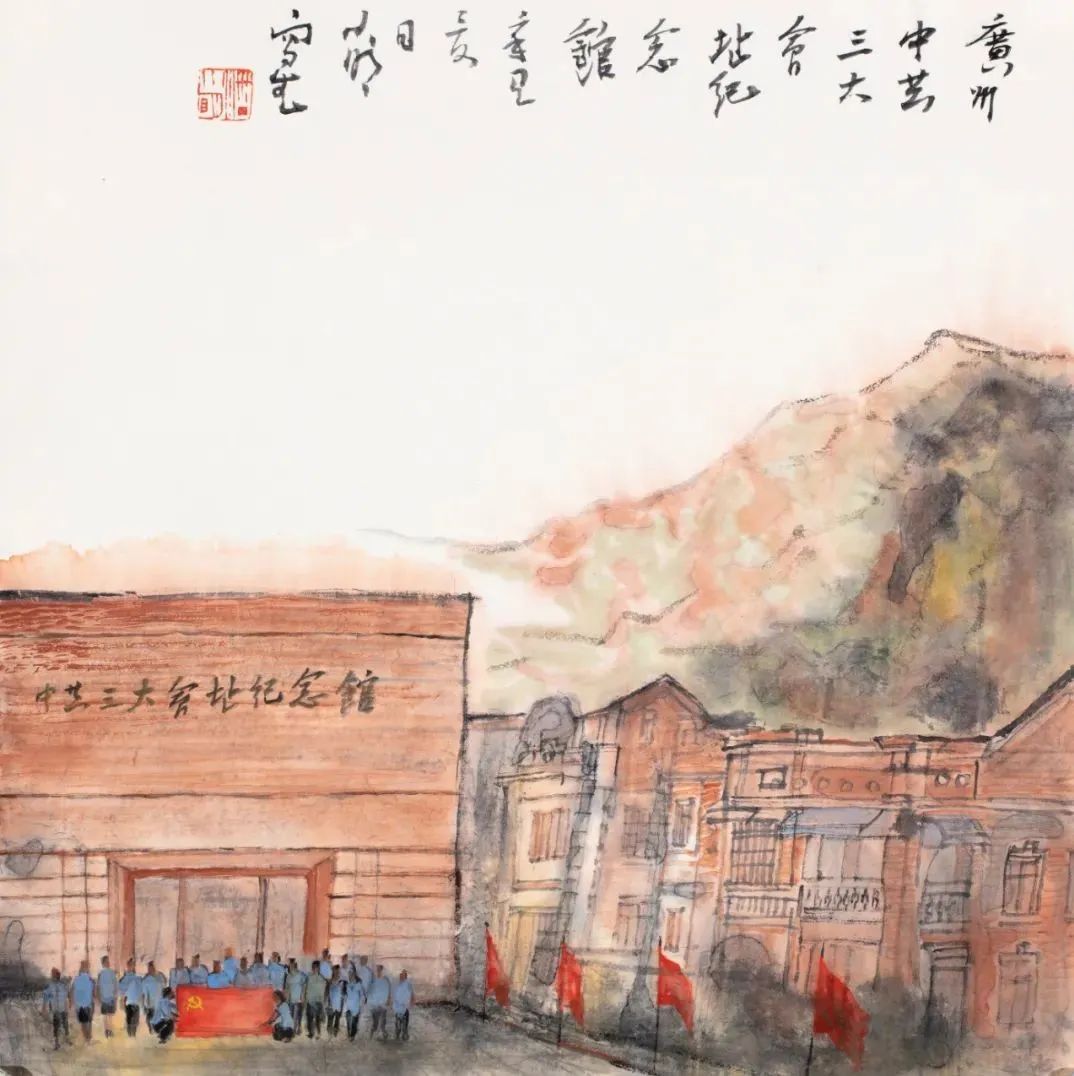 廣州
中共
三大
會
址紀
念
館
辛丑
夏
日
寫生
中共三大會址紀念館